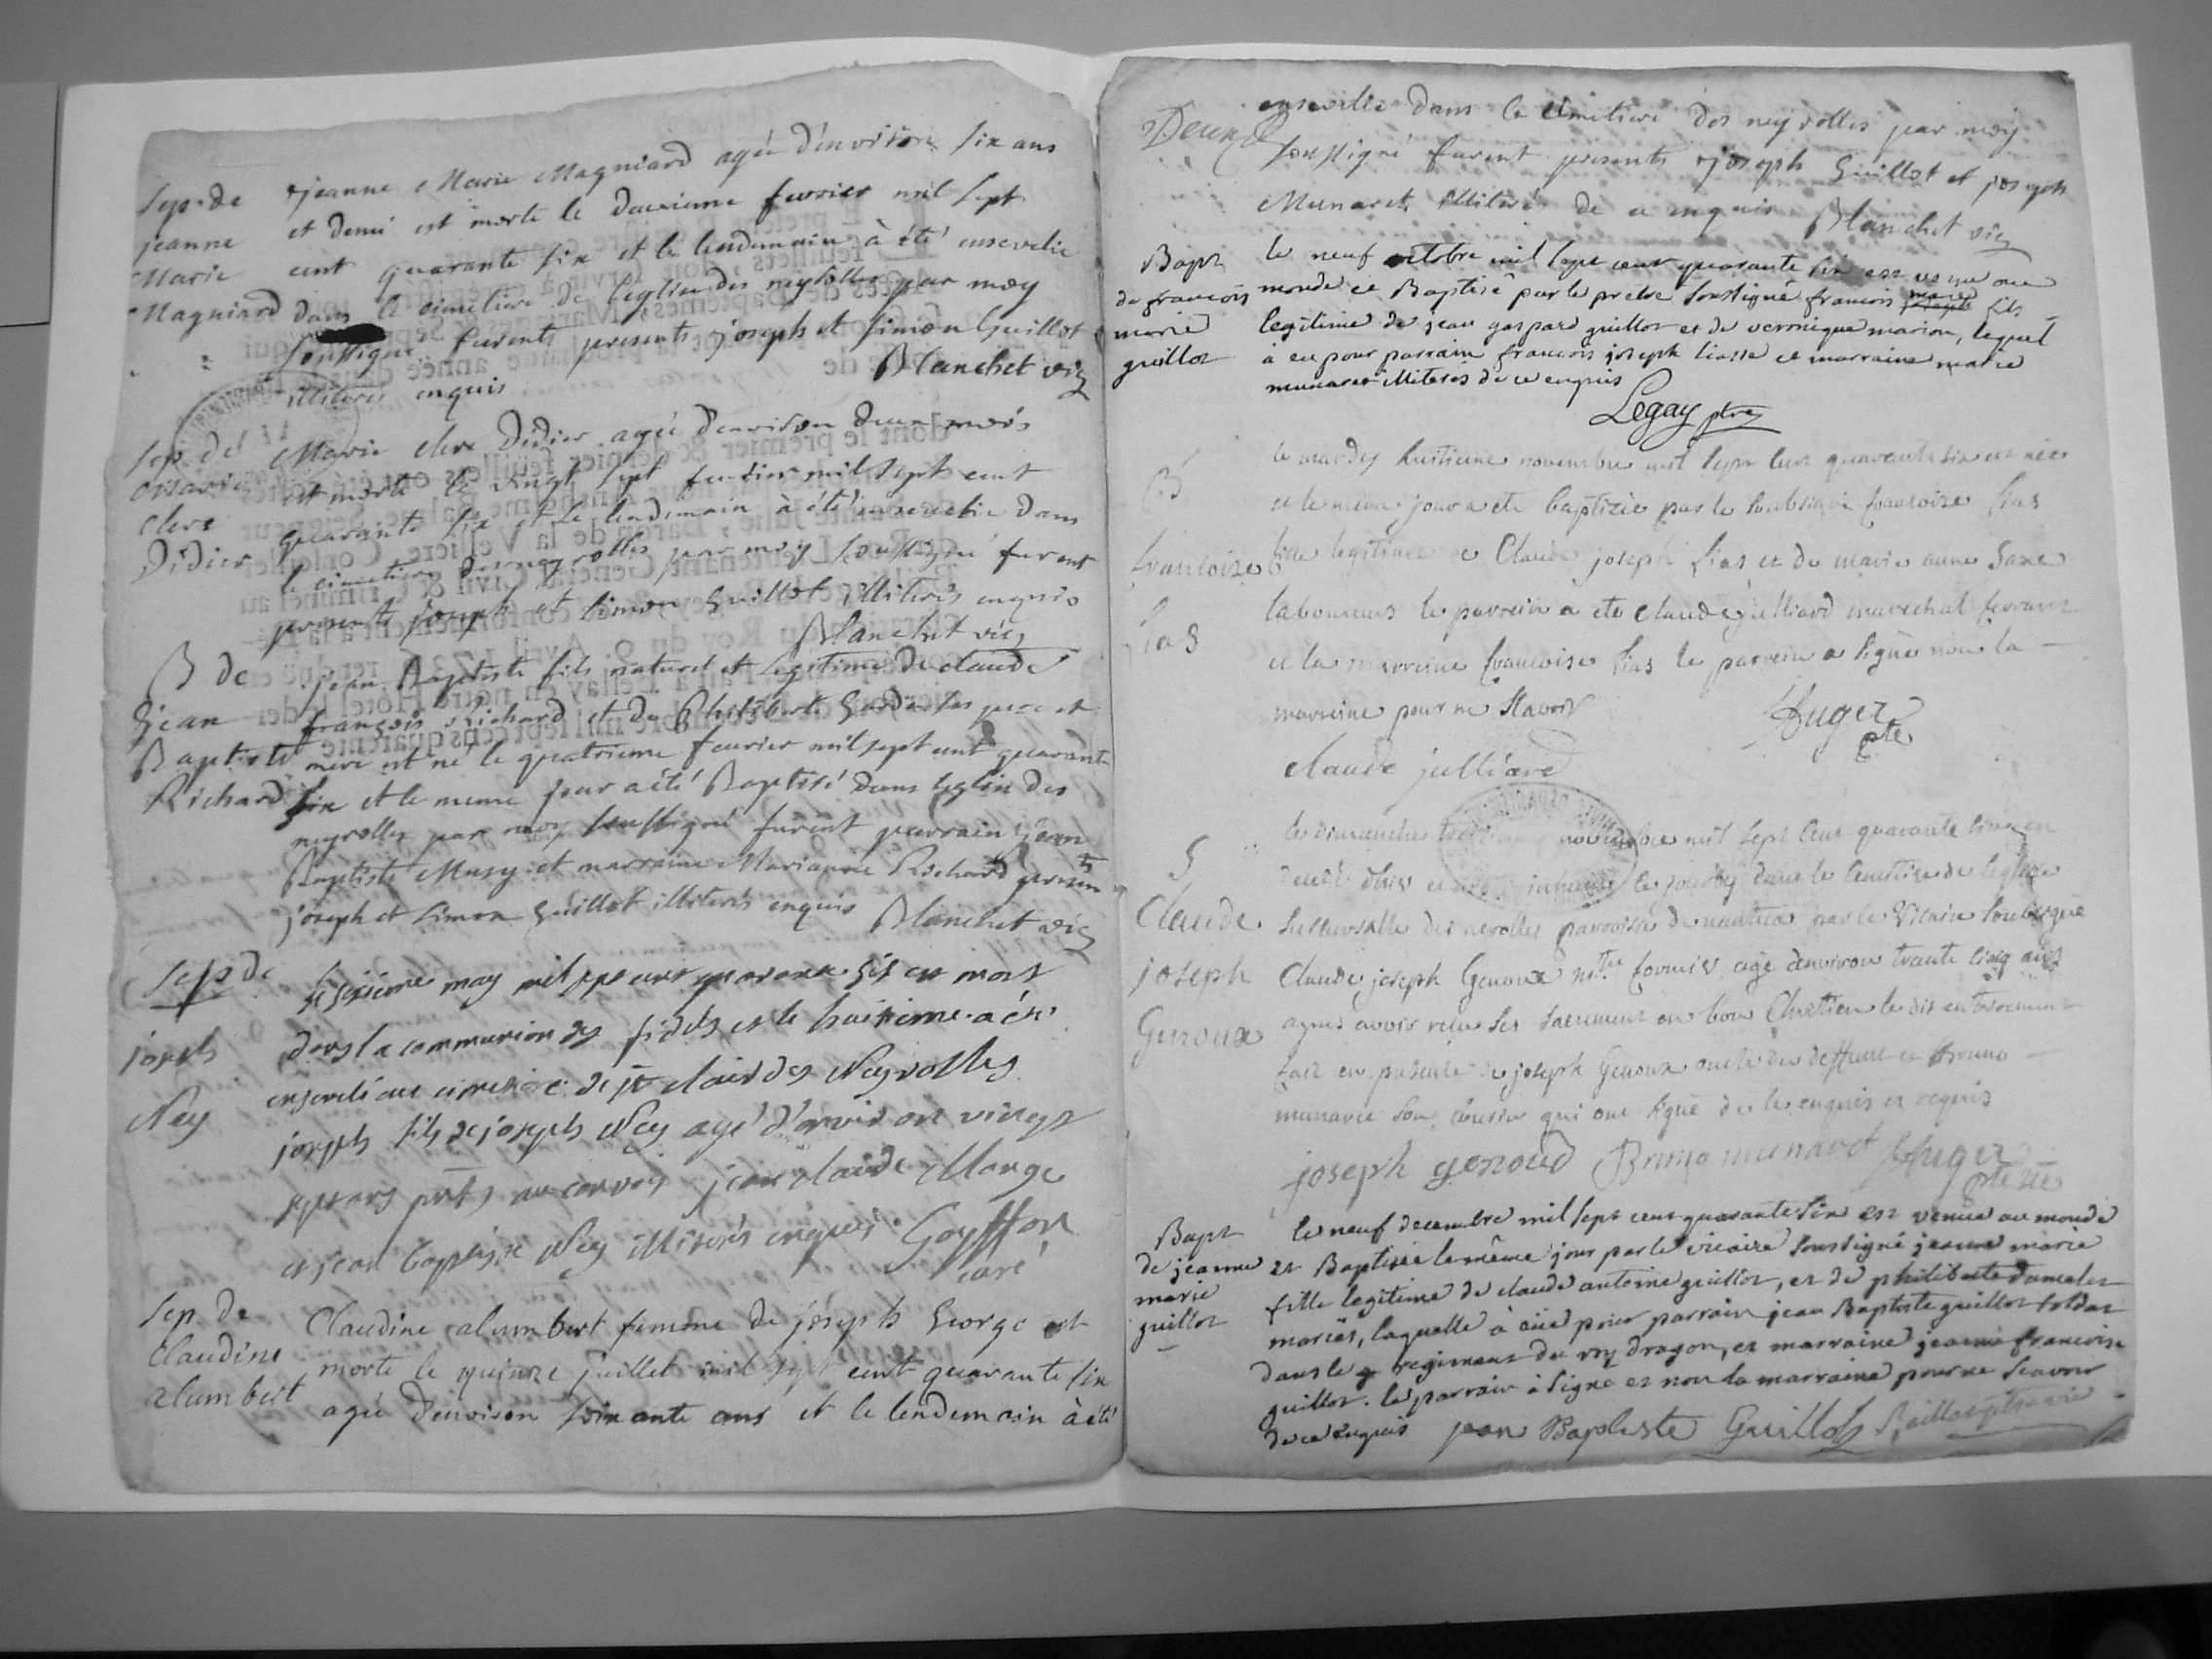 Sep. de
jeanne
Marie
Magniard
jeanne Marie Magniard agée d'environ six ans
et demi est morte le deuxieme fevrier mil sept
cent quarante six et le lendemain à été ensevelie
dans le cimetiere de l'eglise des neyrolles par moy
soussigné furent presents joseph et simon Guillot
illiterés enquis Blanchet vic
Sep. de
Marie
clere
Didier
Marie clere Didier agée d'environ deux mois
est morte le vingt sept fevrier mil sept cent
quarante six et le lendemain à été ensevelie dans
le cimetiere des neyrolles par moy soussigné furent
presents joseph et simon Guillot illiterés enquis
Blanchet vic
B de
jean
Baptiste
Richard
jean Baptiste fils naturel et legitime de claude
françois Richard et de Philiberte ses pere et
mere est né le quatrieme fevrier mil sept cent quarante
six et le meme jour a été Baptisé dans leglise des
neyrolles par moy soussigné furent parrain jean
Baptiste Musy et marraine Marianne Richard presents
joseph et simon Guillot illiterés enquis Blanchet vic
Sep. de
joseph
Ney
le sixieme may mil sept cent quarante six est mort
dans la communion des fideles et le huitieme a été
enseveli au cimetiere de st clair des Neyrolles
joseph fils de joseph Ney agé d'environ vingt
sept ans pnts au convoy jean claude Marge
et jean baptiste Ney illiterés enquis Goyffon
curé
Sep. de
Claudine
alumbert
Claudine alumbert femme de joseph George est
morte le quinze juillet mil sept cent quarante six
agée d'environ soixante ans et le lendemain à été
Deux
ensevelie dans le cimetiere des neyrolles par moy
soussigné furent presents joseph Guillot et joseph
Munaret illiterés de ce enquis Blanchet vic
Bapt
de francois
marie
guillot
le neuf octobre mil sept cent quarante six est venu au
monde et Baptisé par le pretre soussigné francois marie fils
legitime de jean gaspard guillot et de veronique marion, lequel
à eu pour parrain francois joseph liasse et marraine marie
munaret illiterés de ce enquis
Legay ptre
B
francoise
lias
le mardy huitieme novembre mil sept cent quarante six est née
et le meme jour a ete baptizée par le soubsigné francoise lias
fille legitime de Claude joseph lias et de marie anne Saxe
laboureurs le parrein a ete claude julliard marechal ferrant
et la marreine francoise lias le parrein a signé non la
marreine pour ne scavoir
Auger
pte
claude julliard
S
Claude
joseph
Genoux
le dimanche novembre mil sept cent quarante six est
decedé et a été inhumé le dans le cimetiere de leglise
succursalle des nerolles parroisse de nantua par le vicaire soubsigné
Claude joseph Genoux agé denviron trante cinq ans
apres avoir receu ses sacrements en bon Chrettien le dit enterrement
fait en presence de joseph Genoux oncle du deffunt et bruno
munaret son cousin qui ont signé de ce enquis et requis
joseph genoud Bruno munaret Auger
pte
Bapt
de jeanne
marie
guillot
le neuf decembre mil sept cent quarante six est venue au monde
et Baptisée le même jour par le vicaire soussigné jeanne marie
fille legitime de claude antoine guillot, et de philiberte damelet
mariés, laquelle à eüe pour parrain jean Baptiste guillot soldat
dans le regiment du roy dragon, et marraine jeanne francoise
guillot. le parrain à signé et non la marraine pour ne scavoir
de ce enquis jean Baptiste Guillot